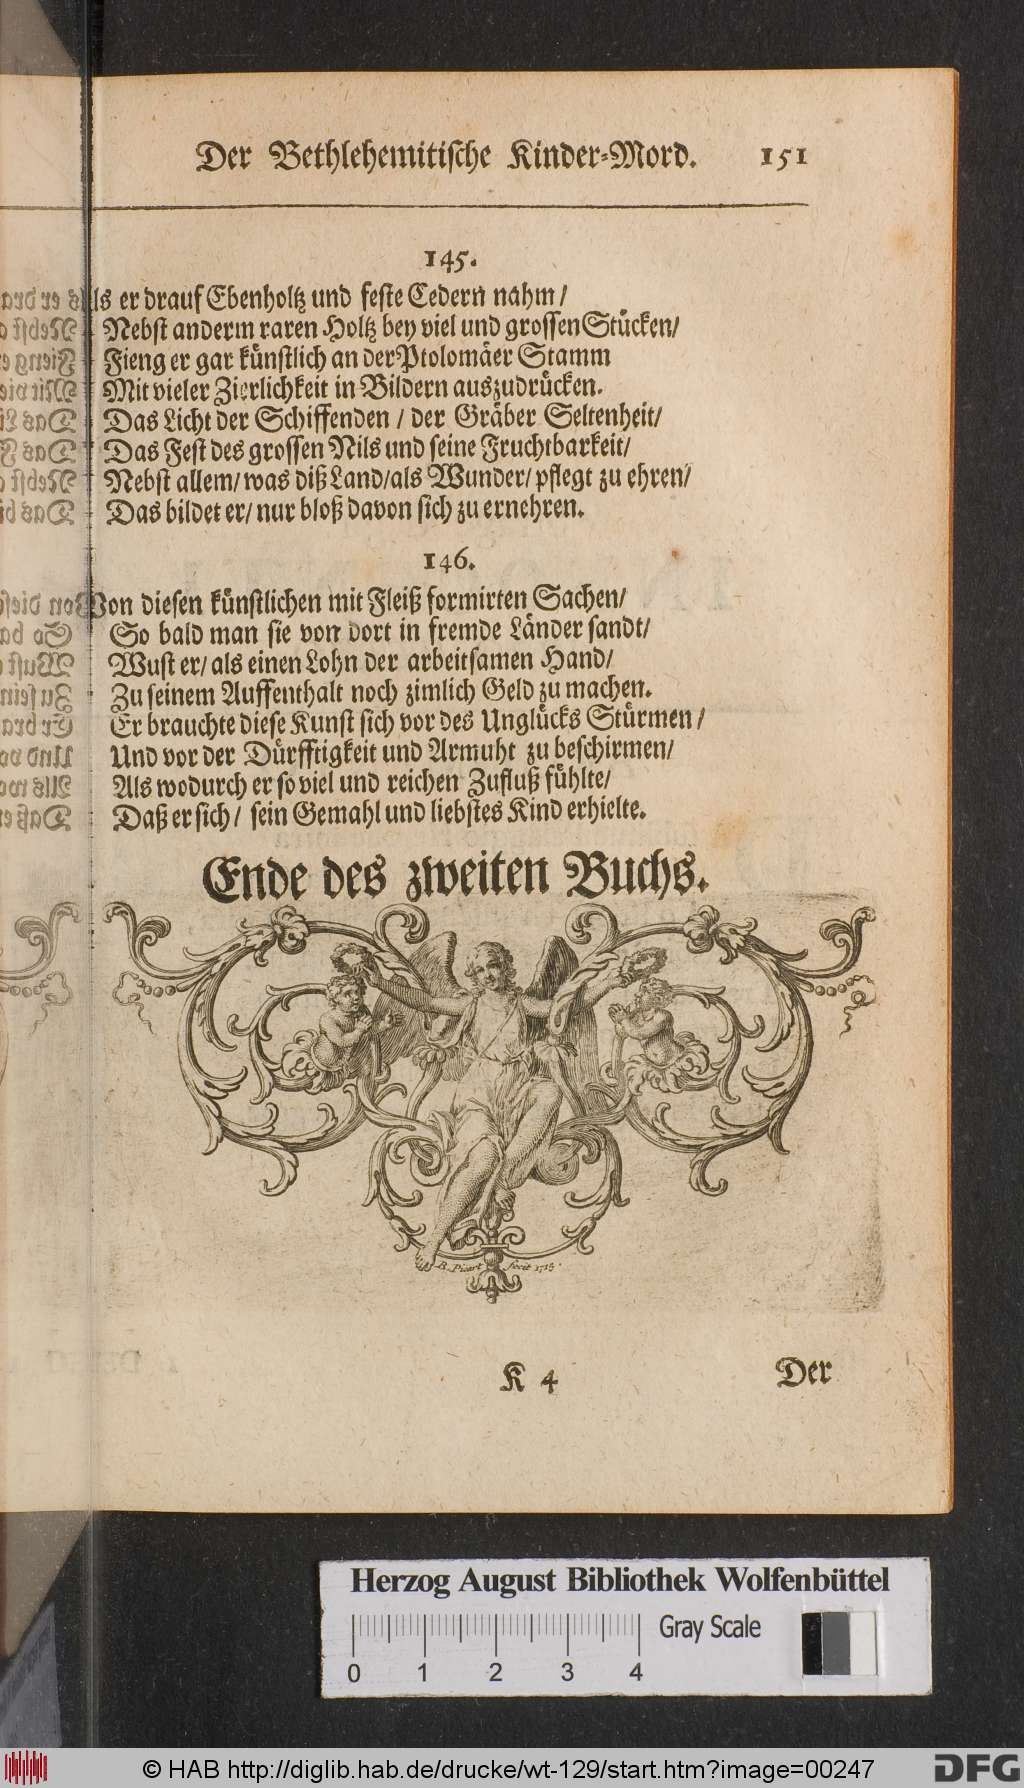 Der Bethlehemitische Kinder-Mord. 151
145.
Als er drauf Ebenholtz und feste Cedern nahm /
Nebst anderm raren Holtz bey viel und grossen Stücken/
Fieng er gar künstlich an der Ptolomäer Stamm
Mit vieler Zierlichkeit in Bildern auszudrücken.
Das Licht der Schiffenden / der Gräber Seltenheit/
Das Fest des grossen Nils und seine Fruchtbarkeit/
Nebst allem/ was diß Land/als Wunder/ pflegt zu ehren/
Das bildet er/ nur bloß davon sich zu ernehren.
146.
Von diesen künstlichen mit Fleiß formirten Sachen/
So bald man sie von dort in fremde Länder sandt/
Wust er/ als einen Lohn der arbeitsamen Hand/
Zu seinem Auffenthalt noch zimlich Geld zu machen.
Er brauchte diese Kunst sich vor des Unglücks Stürmen /
Und vor der Dürfftigkeit und Armuht zu beschirmen/
Als wodurch er so viel und reichen Zufluß fühlte/
Daß er sich/ sein Gemahl und liebstes Kind erhielte.
Ende des zweiten Buchs.
B. Picart fecit 1715.
K 4 Der
Herzog August Bibliothek Wolfenbüttel
Gray Scale
0 1 2 3 4
© HAB http://diglib.hab.de/drucke/wt-129/start.htm?image=00247
DFG